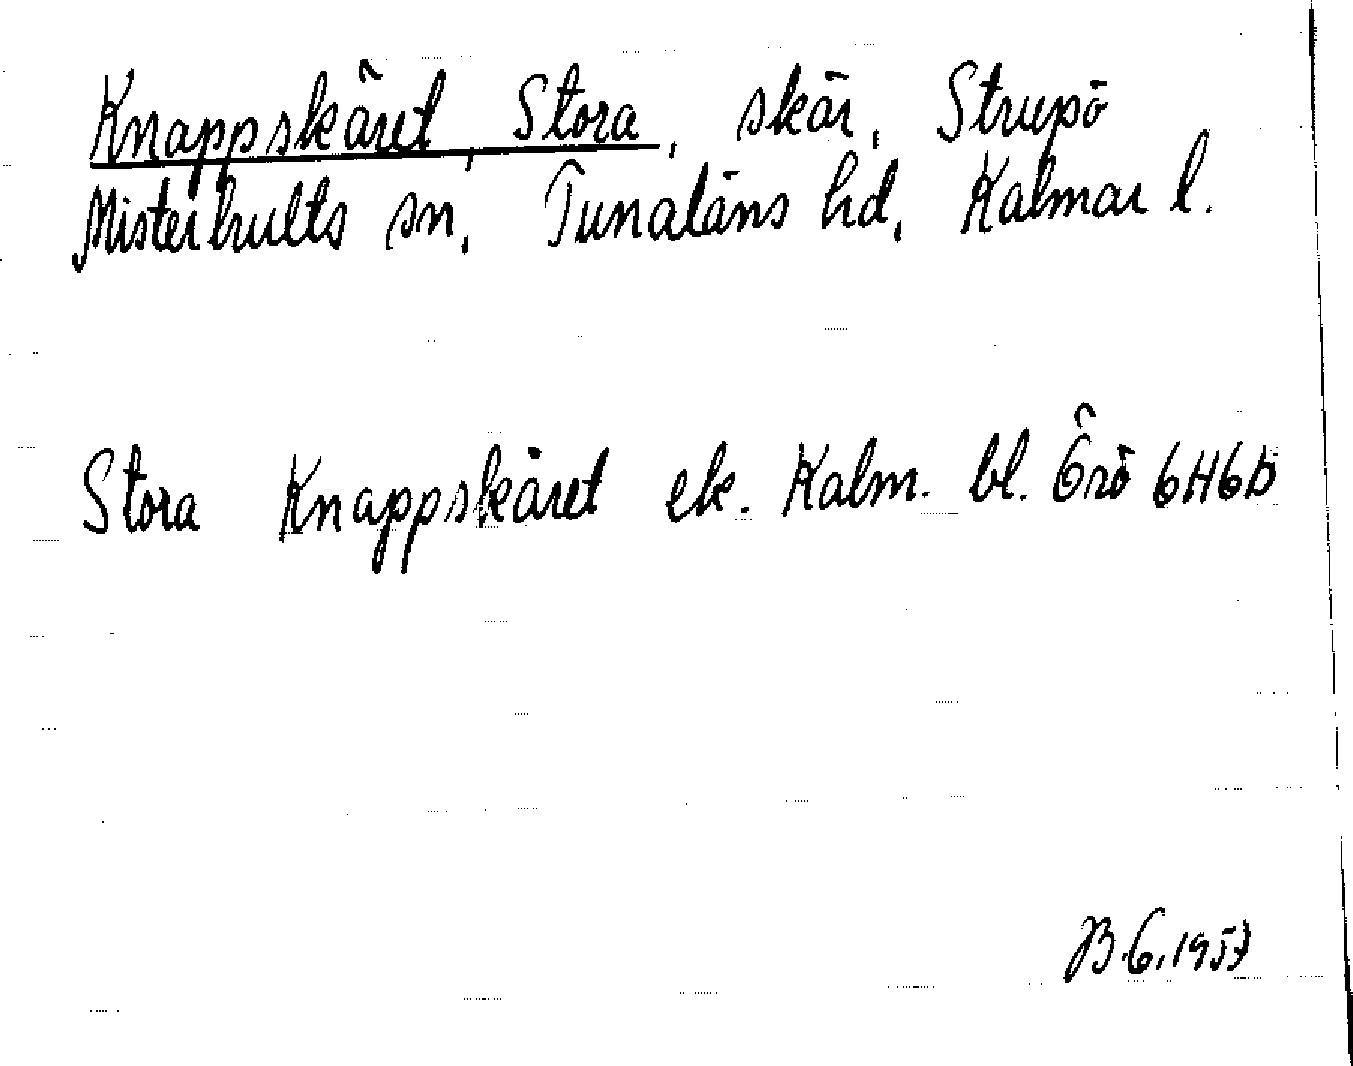 Knappskäret, Stora, skär, Strupö
Misterhults sn, Tunaläns hd, Kalmar l.
Stora Knappskäret ek. Kalm. bl. Örö 6H6b
B.G. 1957